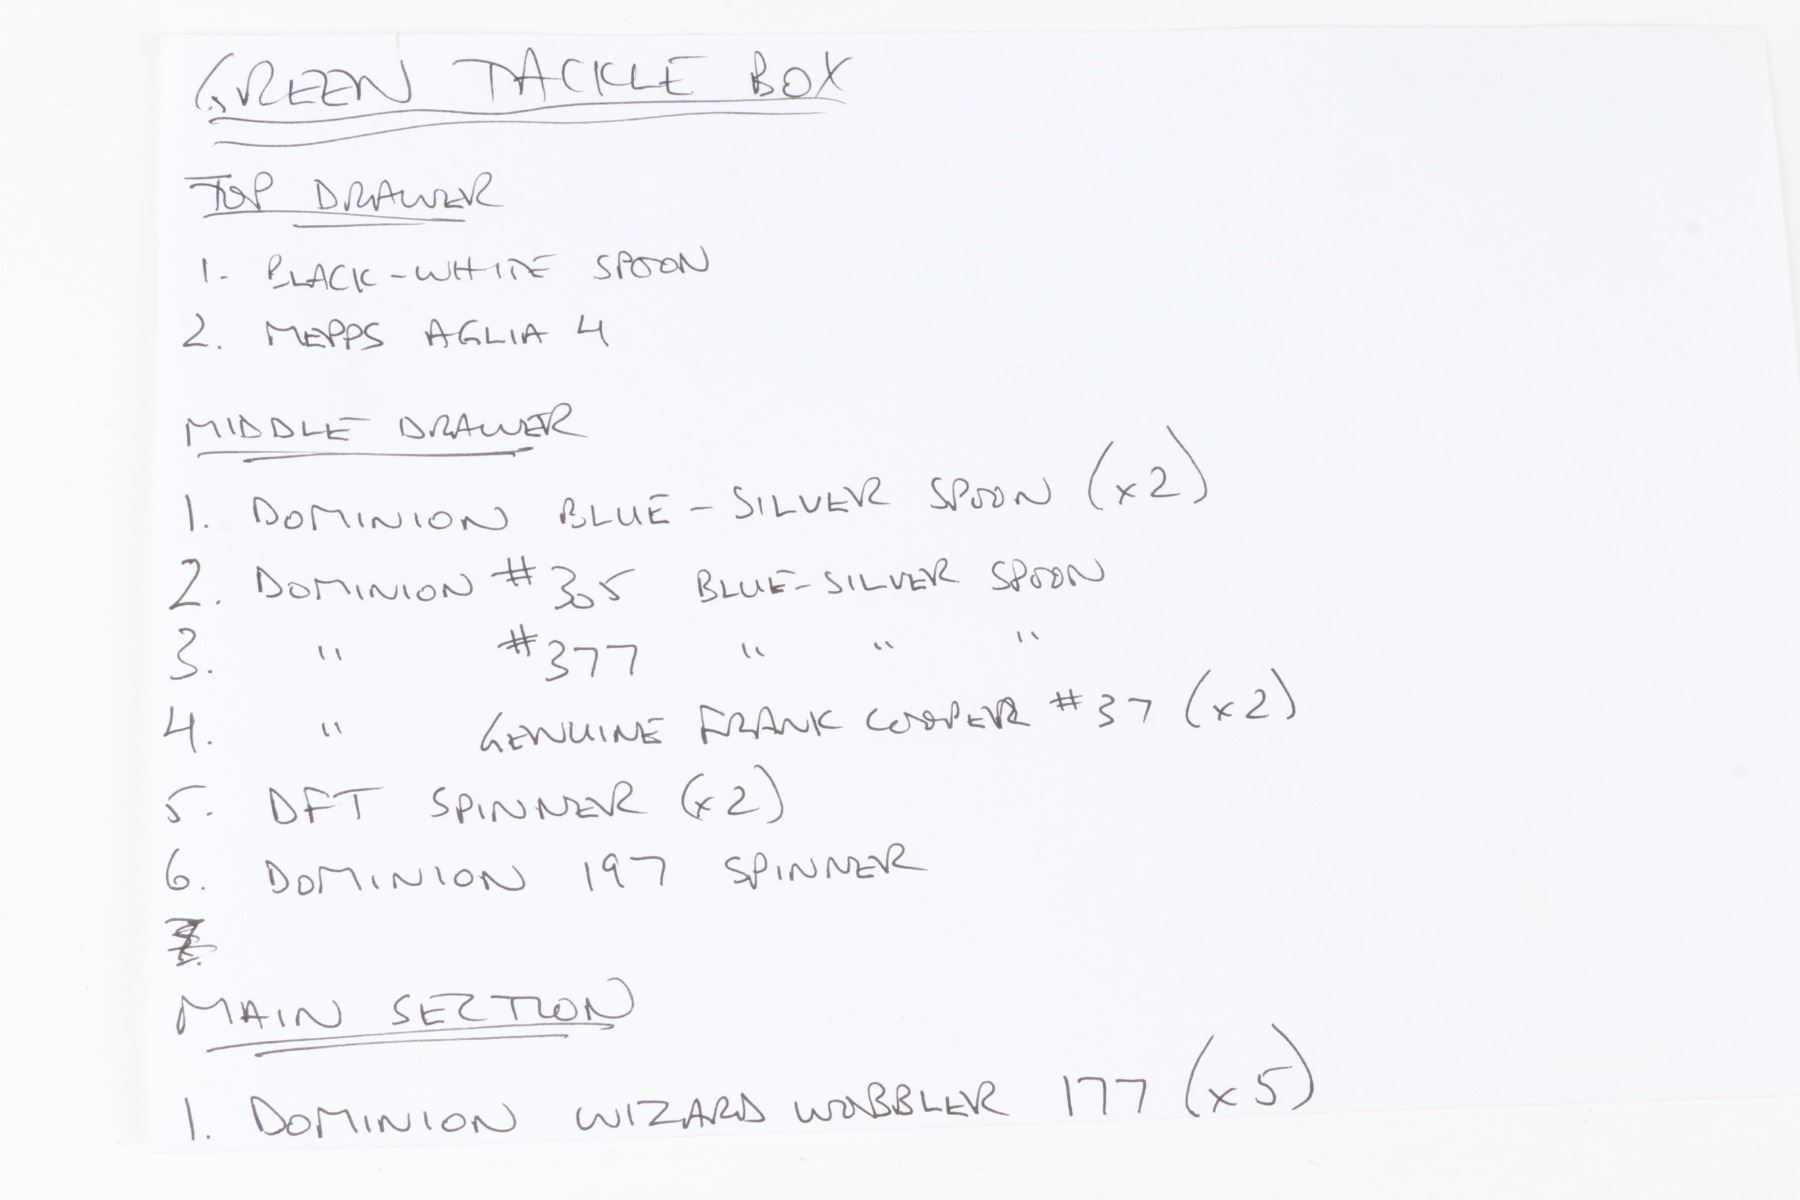 GREEN TACKLE BOX
TOP DRAWER
1. BLACK-WHITE SPOON
2. MEPPS AGLIA 4
MIDDLE DRAWER
1. DOMINION BLUE-SILVER SPOON (x2)
2. DOMINION #305 BLUE-SILVER SPOON
3. " #377 " " "
4. " GENUINE FRANK COOPER #37 (x2)
5. DFT SPINNER (x2)
6. DOMINION 197 SPINNER
MAIN SECTION
1. DOMINION WIZARD WOBBLER 177 (x5)